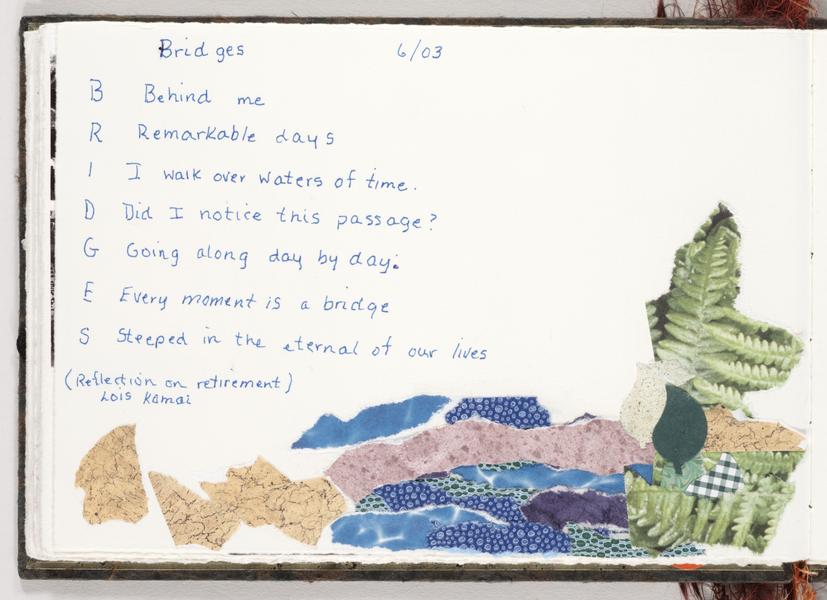 Bridges 6/03
B Behind me
R Remarkable days
I I walk over waters of time.
D Did I notice this passage?
G Going along day by day.
E Every moment is a bridge
S Steeped in the eternal of our lives
(Reflection on retirement)
Lois Kamai